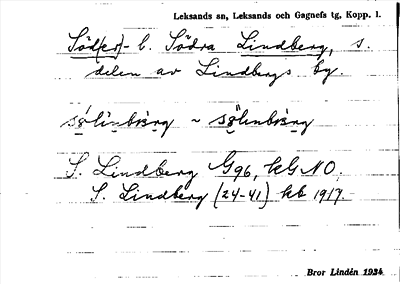 Leksands sn, Leksands och Gagnefs tg, Kopp. l.
Söd(er)- l. Södra Lindberg, s.
delen av Lindbergs by.
S. Lindberg G96, kG NO.
S. Lindberg (24-41) kb 1917.
Bror Lindén 1934